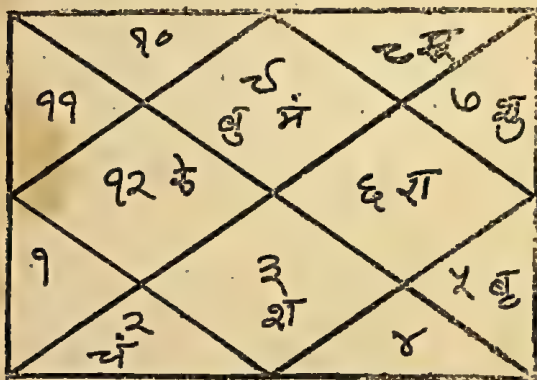 १०
८ सू
९
बु मं
११
७ शु
१२ के
६ रा
१
३
श
५ बृ
२
चं
४